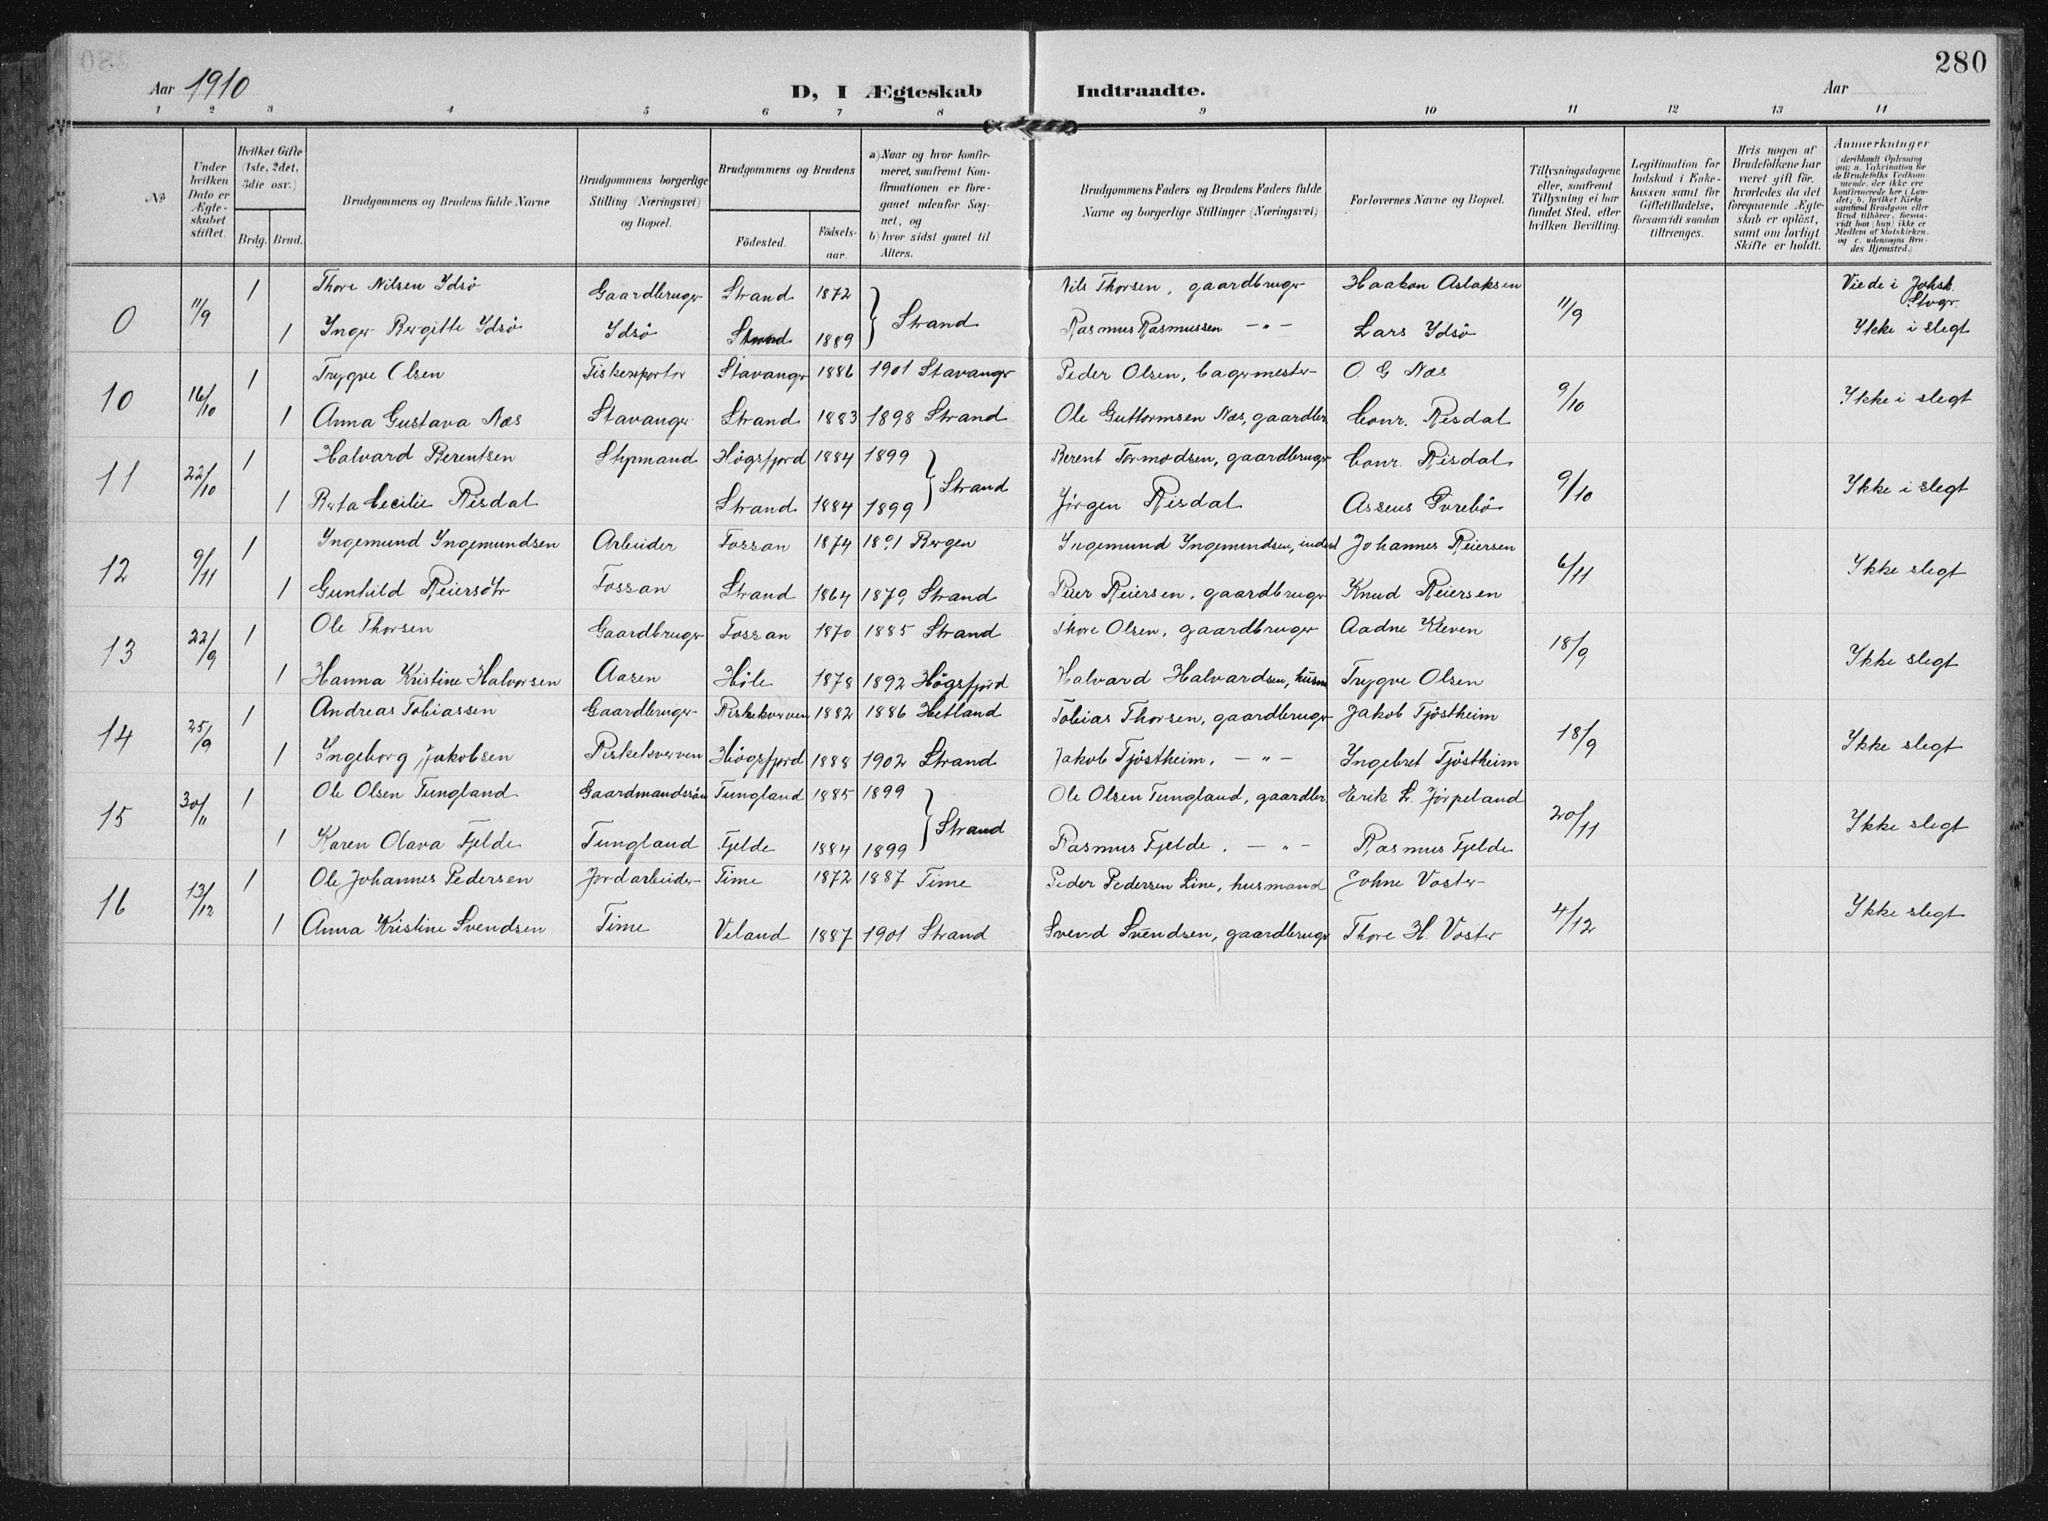 280
Aar 1910
D, I Ægteskab Indtraadte.
Aar
1 2 3 4 5 6 7 8 9 10 11 12 13 14
No
Under hvilken Dato er Ægteskabet stiftet.
Hvilket Gifte (1ste, 2det, 3die osv.)
Brdg. Brud.
Brudgommens og Brudens fulde Navne
Brudgommens borgerlige Stilling (Næringsvei) og Bopæl.
Brudgommens og Brudens
Födested. Födselsaar.
a) Naar og hvor konfirmeret, saafremt Konfirmationen er foregaaet udenfor Sognet, og
b) hvor sidst gaaet til Alters.
Brudgommens Faders og Brudens Faders fulde Navne og borgerlige Stillinger (Næringsvei)
Forlovernes Navne og Bopæl.
Tillysningsdagene eller, saafremt Tillysning ei har fundet Sted, efter hvilken Bevilling.
Legitimation for Indskud i Enkekassen samt for Giftetilladelse, forsaavidt saadan tiltrænges.
Hvis nogen af Brudefolkene har været gift för, hvorledes da det foregaaende Ægteskab er oplöst, samt om lovligt Skifte er holdt.
Anmærkninger (deriblandt Oplysning om: a. Vakcination for de Brudefolks Vedkommende, der ikke ere konfirmerede her i Landet; b. hvilket Kirkesamfund Brudgom eller Brud tilhörer, forsaavidt han (hun) ikke er Medlem af Statskirken og c. udensogns Brudes Hjemsted.)
0 11/9 1 Thore Nilsen Idsø Gaardbruger Strand 1872 Strand Nils Thorsen, gaardbruger Haakon Aslaksen 11/9 Viede i Johsk. Stvgr.
1 Inger Bergitte Idsø Idsø Strand 1889 Rasmus Rasmussen -"- Lars Idsø Ikke i slegt
10 16/10 1 Trygve Olsen Fiskexportør Stavanger 1886 1901 Stavanger Peder Olsen, bagermester O. G Næs 9/10 Ikke i slegt
1 Anna Gustava Næs Stavanger Strand 1883 1898 Strand Ole Guttormsen Næs, gaardbr. Conr. Risdal
11 22/10 1 Halvard Berentsen Styrmand Høgsfjord 1884 1899 Strand Berent Tormodsen, gaardbruger Conr. Risdal 9/10 Ikke i slegt
1 Berta Cecilie Risdal Strand 1884 1899 Jørgen Risdal Asseus
12 9/11 1 Ingemund Ingemundsen Arbeider Fossan 1874 1891 Bergen Ingemund Ingemundsen, inderst Johannes Reiersen 6/11 Ikke slegt
1 Gunhild Reiersdtr Fossan Strand 1864 1879 Strand Reier Reiersen, gaardbruger Knud Reiersen
13 22/9 1 Ole Thorsen Gaardbruger Fossan 1870 1885 Strand Thore Olsen, gaardbruger Aadne Kleven 18/9 Ikke slegt
1 Hanna Kristine Halvorsen Aasen Høle 1878 1892 Høgsfjord Halvard Halvardsen, husm Trygve Olsen
14 25/9 1 Andreas Tobiassen Gaardbruger Riskekverven 1882 1886 Hetland Tobias Thorsen, gaardbruger Jakob Tjøstheim 18/9 Ikke slegt
1 Ingeborg Jakobsen Riskekverven Høgsfjord 1888 1902 Strand Jakob Tjøstheim, -"- Ingebret Tjøstheim
15 30/11 1 Ole Olsen Tungland Gaardmandssøn Tungland 1885 1899 Strand Ole Olsen Tungland, gaardbr. Erik L. Jørpeland 20/11 Ikke slegt
1 Karen Olava Fjelde Tungland Fjelde 1884 1899 Rasmus Fjelde, -"- Rasmus Fjelde
16 13/12 1 Ole Johannes Pedersen Jordarbeider Time 1872 1887 Time Peder Pedersen Line, husmand Johne Voster 4/12 Ikke slegt
1 Anna Kristine Svendsen Time Veland 1887 1901 Strand Svend Svendsen, gaardbruger Thore H. Voster